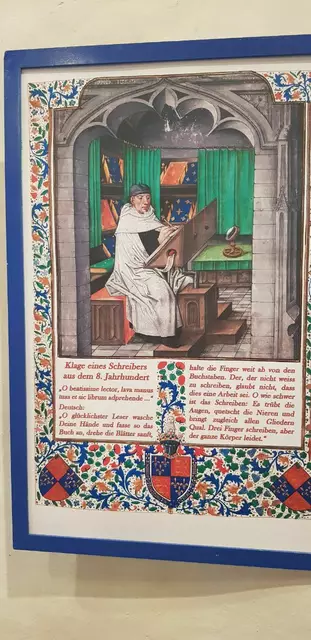 Klage eines Schreibers
aus dem 8. Jahrhundert
„O beatissime lector, lava manus
tuas et sic librum adprehende ..."
Deutsch:
„O glücklichster Leser wasche
Deine Hände und fasse so das
Buch an, drehe die Blätter sanft,
halte die Finger weit ab von den
Buchstaben. Der, der nicht weiss
zu schreiben, glaubt nicht, dass
dies eine Arbeit sei. O wie schwer
ist das Schreiben: Es trübt die
Augen, quetscht die Nieren und
bringt zugleich allen Gliedern
Qual. Drei Finger schreiben, aber
der ganze Körper leidet."